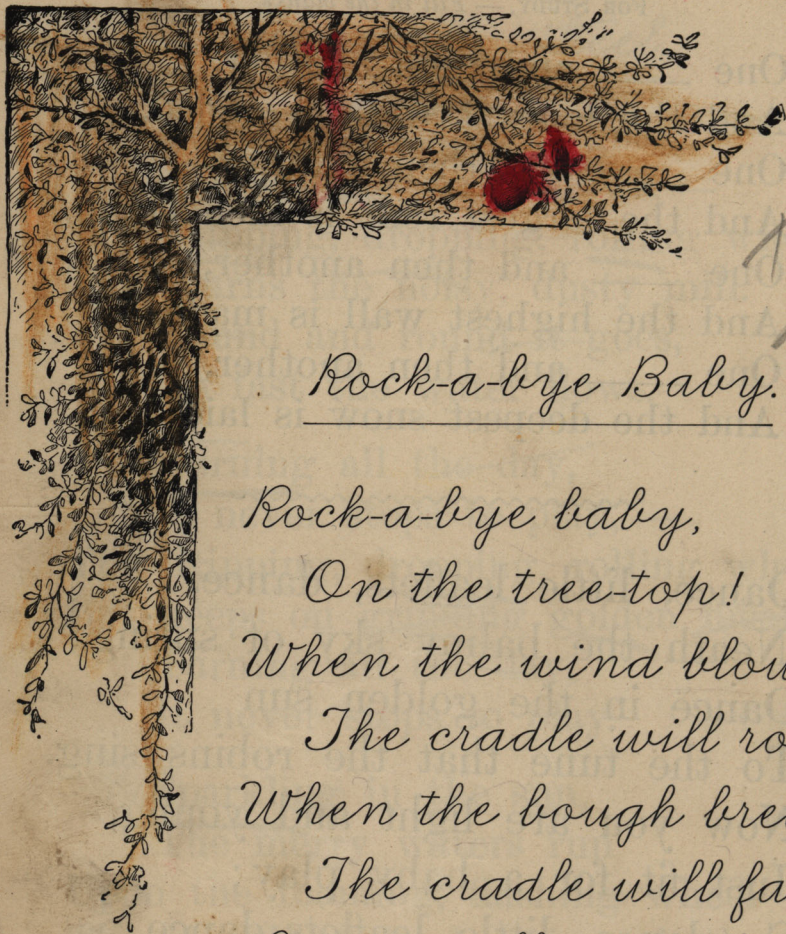 Rock-a-bye Baby.
Rock-a-bye baby,
On the tree-top!
When the wind blow
The cradle will ro
When the bough bre
The cradle will fa